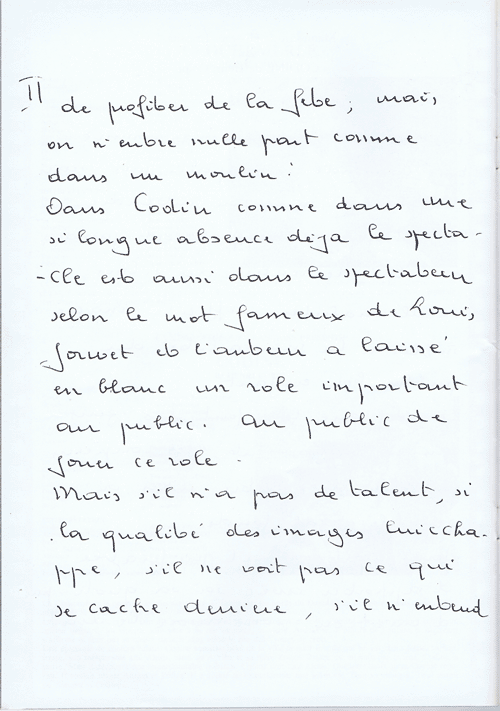 II
de profiter de la fête ; mais
on n'entre nulle part comme
dans un moulin !
Dans Codin comme dans une
si longue absence déja le specta-
-cle est aussi dans le spectateur
selon le mot fameux de Louis
Jouvet et l'auteur a laissé
en blanc un role important
au public. Au public de
jouer ce role.
Mais s'il n'a pas de talent, si
la qualité des images luiécha-
ppe, s'il ne voit pas ce qui
se cache derriere, s'il n'entend